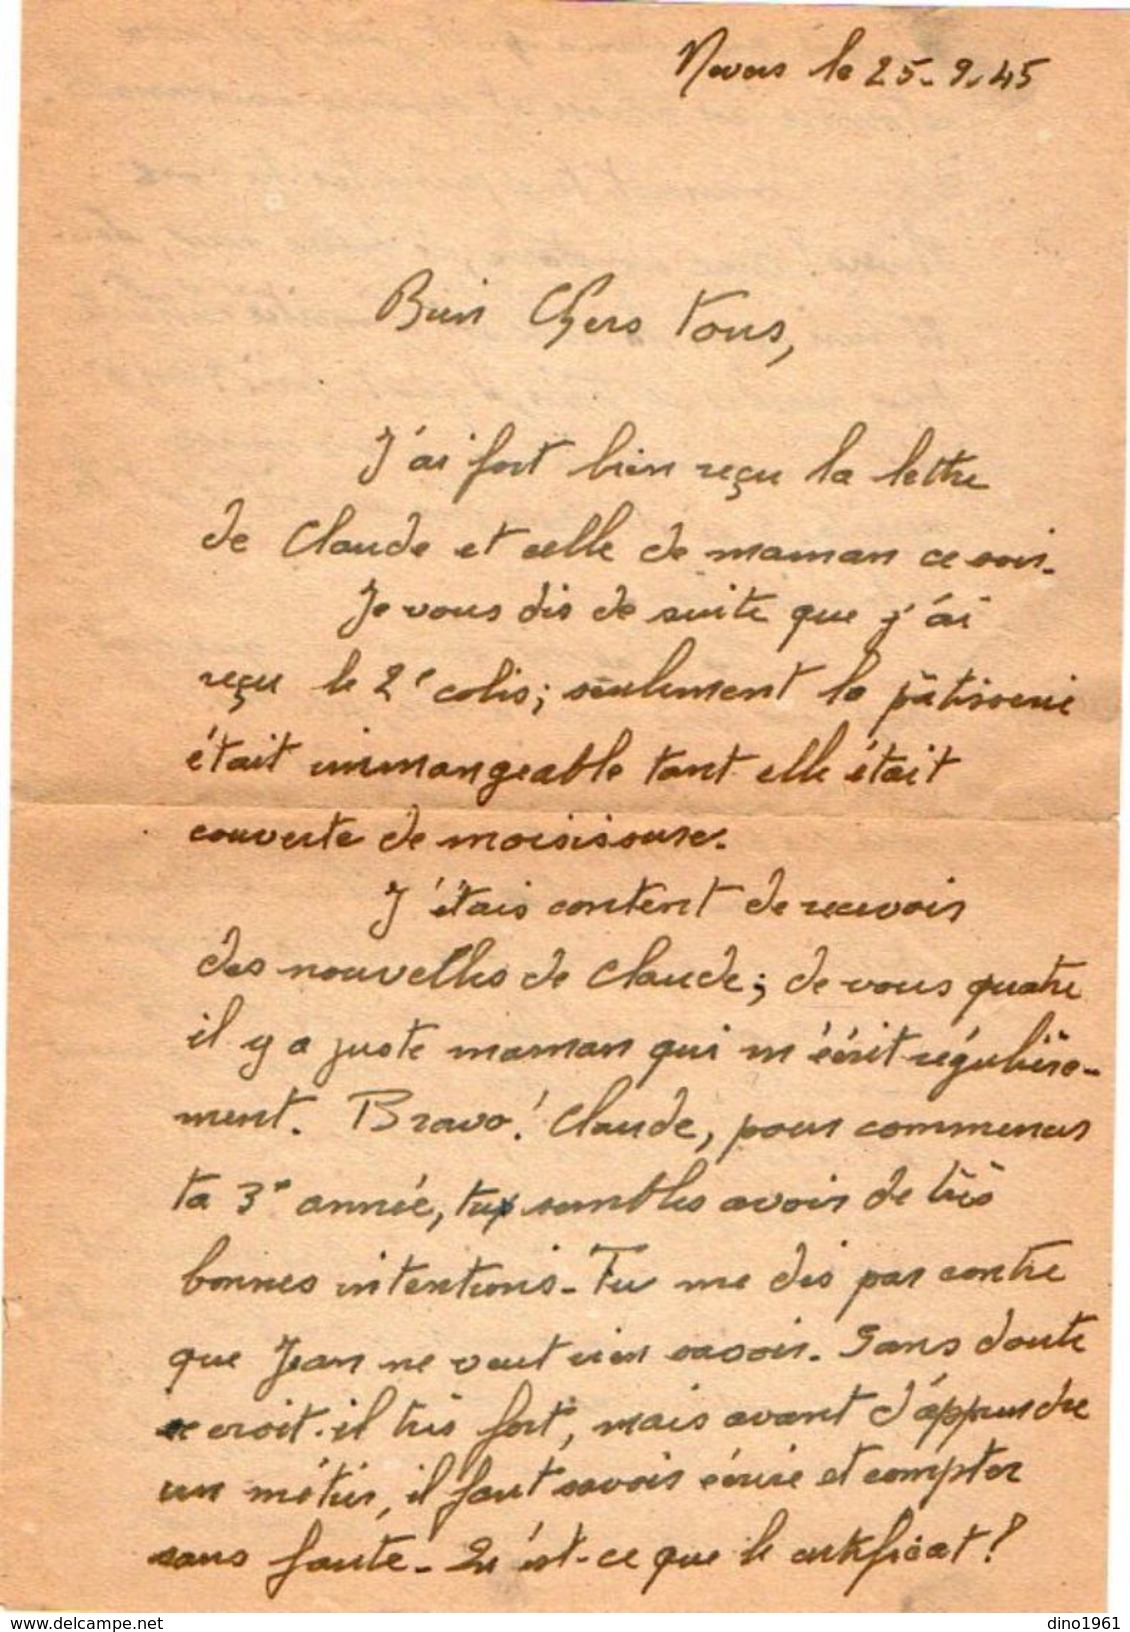 Nevers le 25-9-45
Bien Chers Tous,
J'ai fort bien reçu la lettre
de Claude et celle de maman ce soir.
Je vous dis de suite que j'ai
reçu le 2e colis; seulement la pâtisserie
était immangeable tant elle était
couverte de moisissure.
J'étais content de recevoir
des nouvelles de Claude; de vous quatre
il y a juste maman qui m'écrit régulière-
ment. Bravo! Claude, pour commencer
ta 3e année, tu sembles avoir de très
bonnes intentions. Tu me dis par contre
que Jean ne veut rien savoir. Sans doute
se croit-il très fort, mais avant d'apprendre
un métier, il faut savoir écrire et compter
sans faute. Qu'est-ce que le certificat?
www.delcampe.net
dino1961